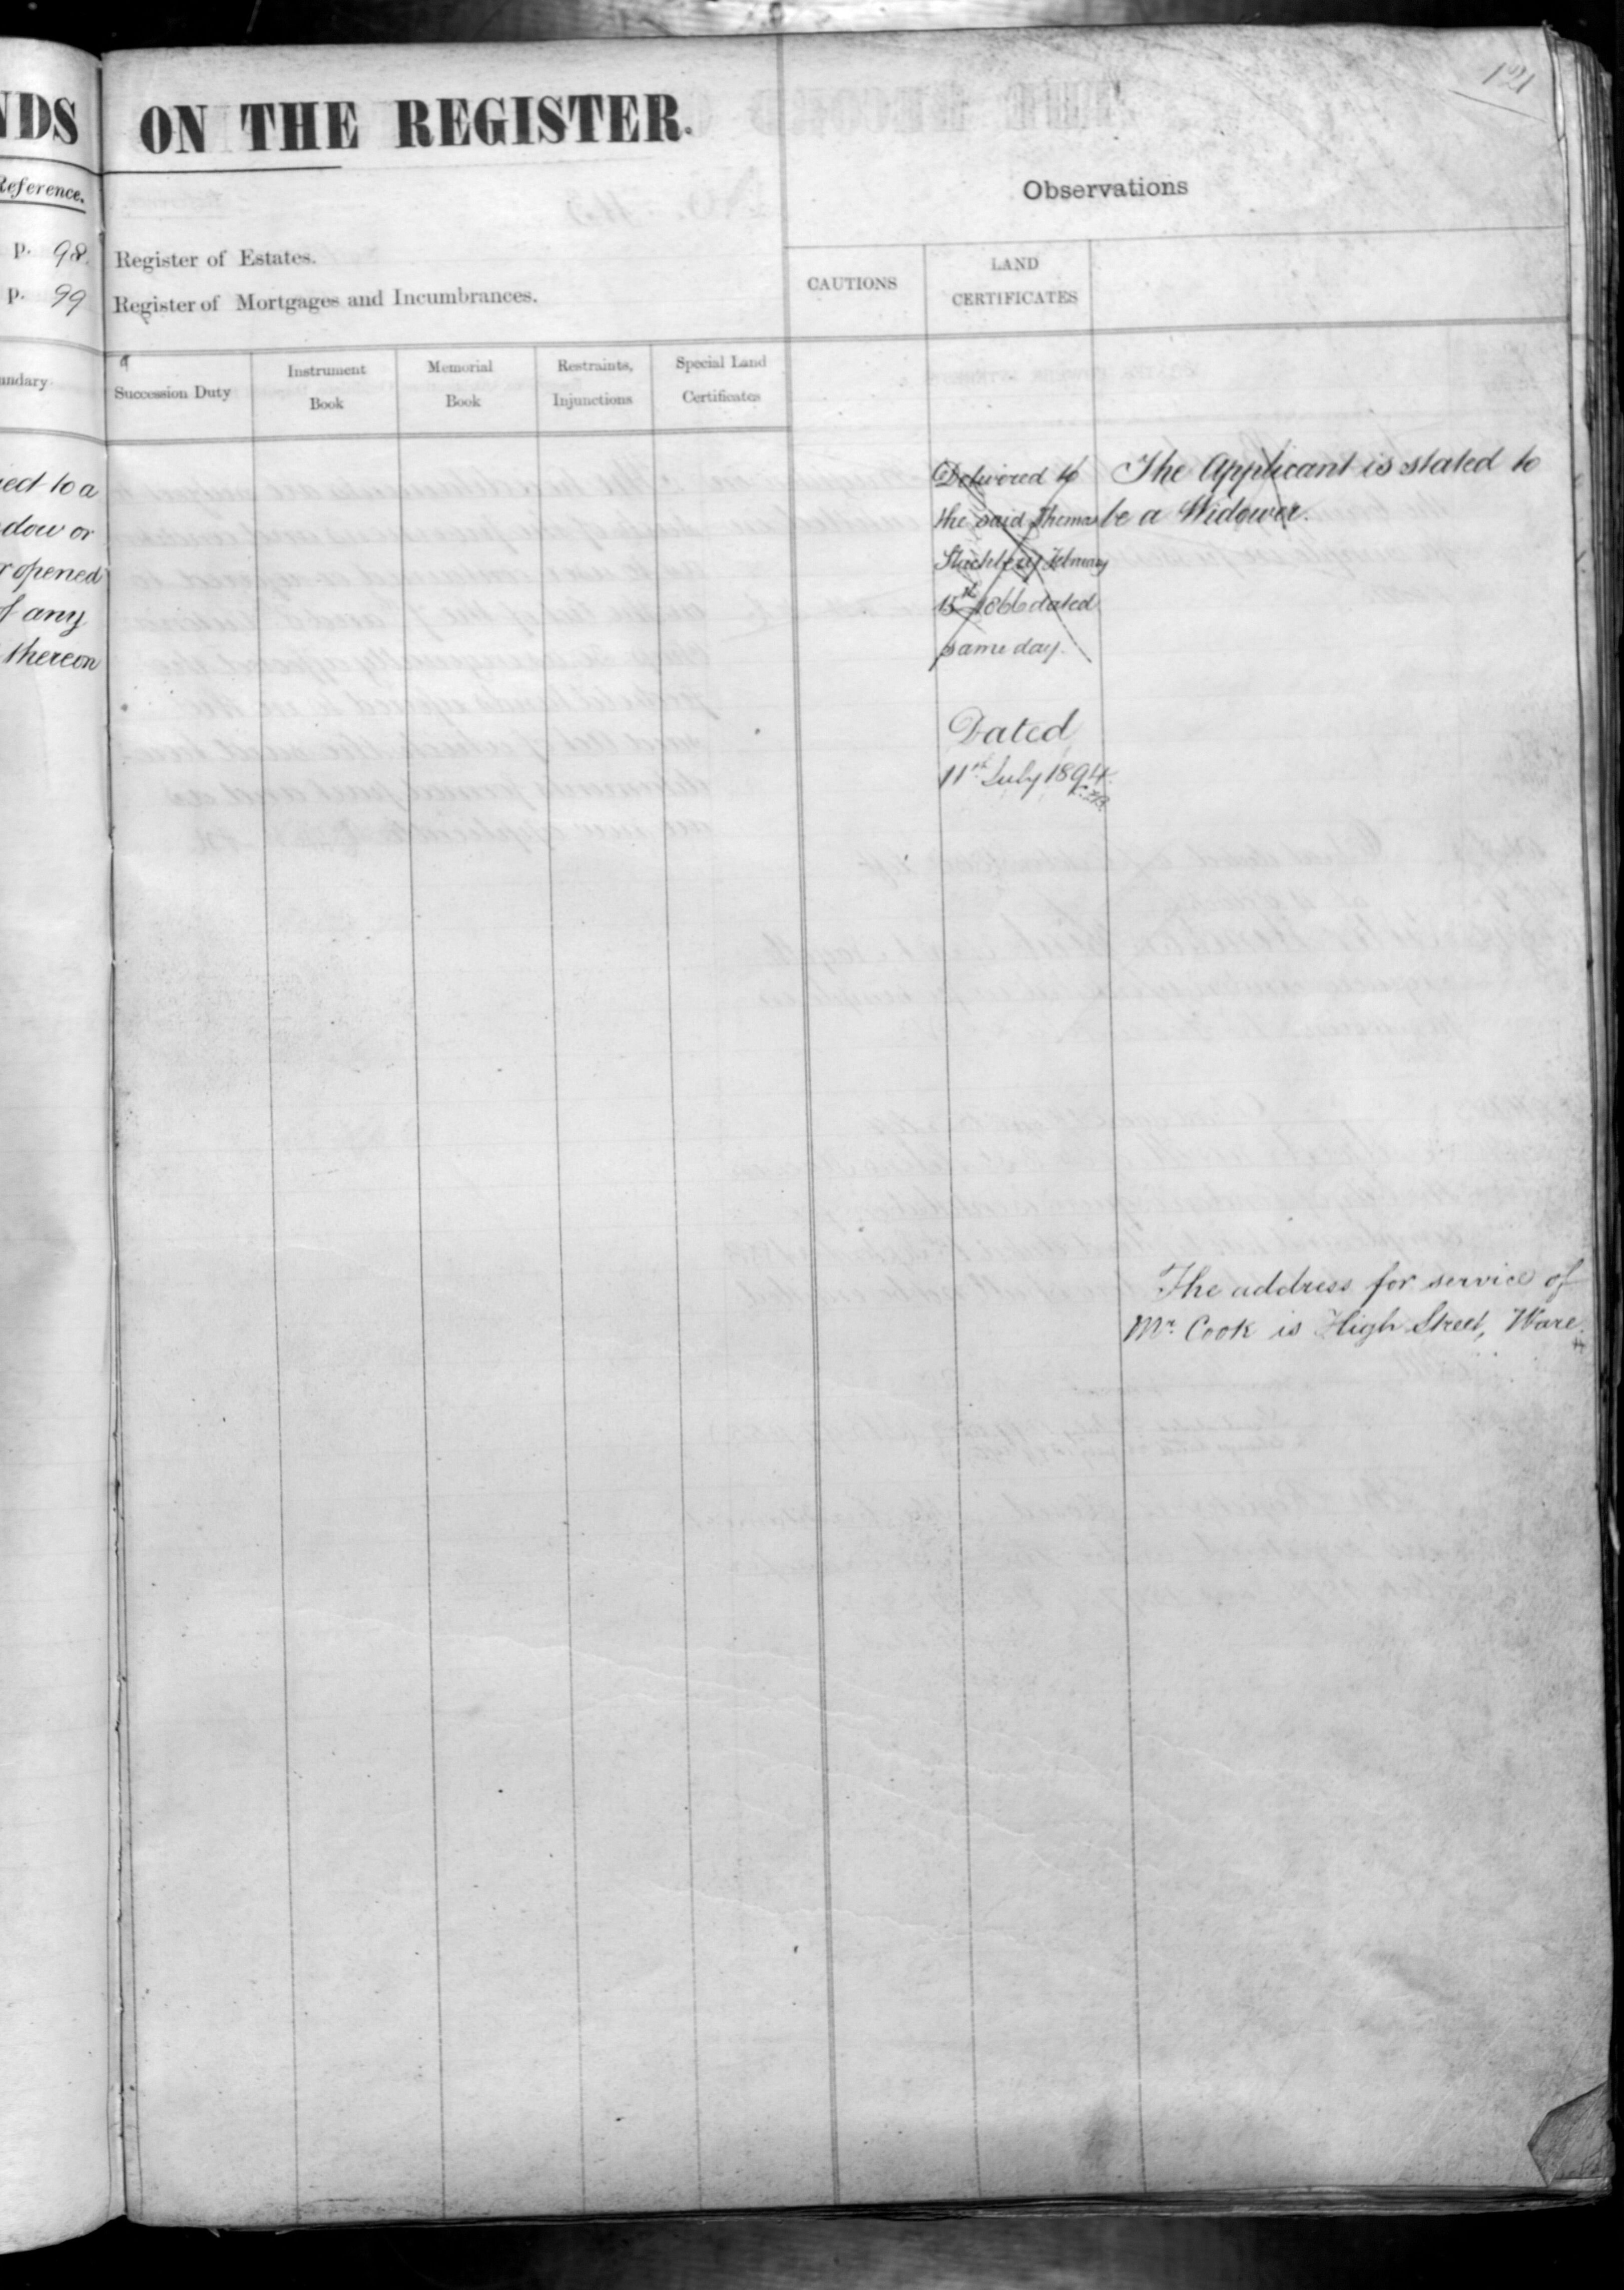 NDS
Reference.
p. 98.
p. 99
undary
ect to a
dow or
r opened
of any
thereon
ON THE REGISTER.
Register of Estates.
Register of Mortgages and Incumbrances.
Succession Duty
Instrument
Book
Memorial
Book
Restraints,
Injunctions
Special Land
Certificates
121
Observations
CAUTIONS
LAND
CERTIFICATES
Delivered to
the said Thomas
February
15th 1866 dated
same day.
Dated
11th July 1894
The Applicant is stated to
be a Widower.
The address for service of
Mr. Cook is High Street, Ware.